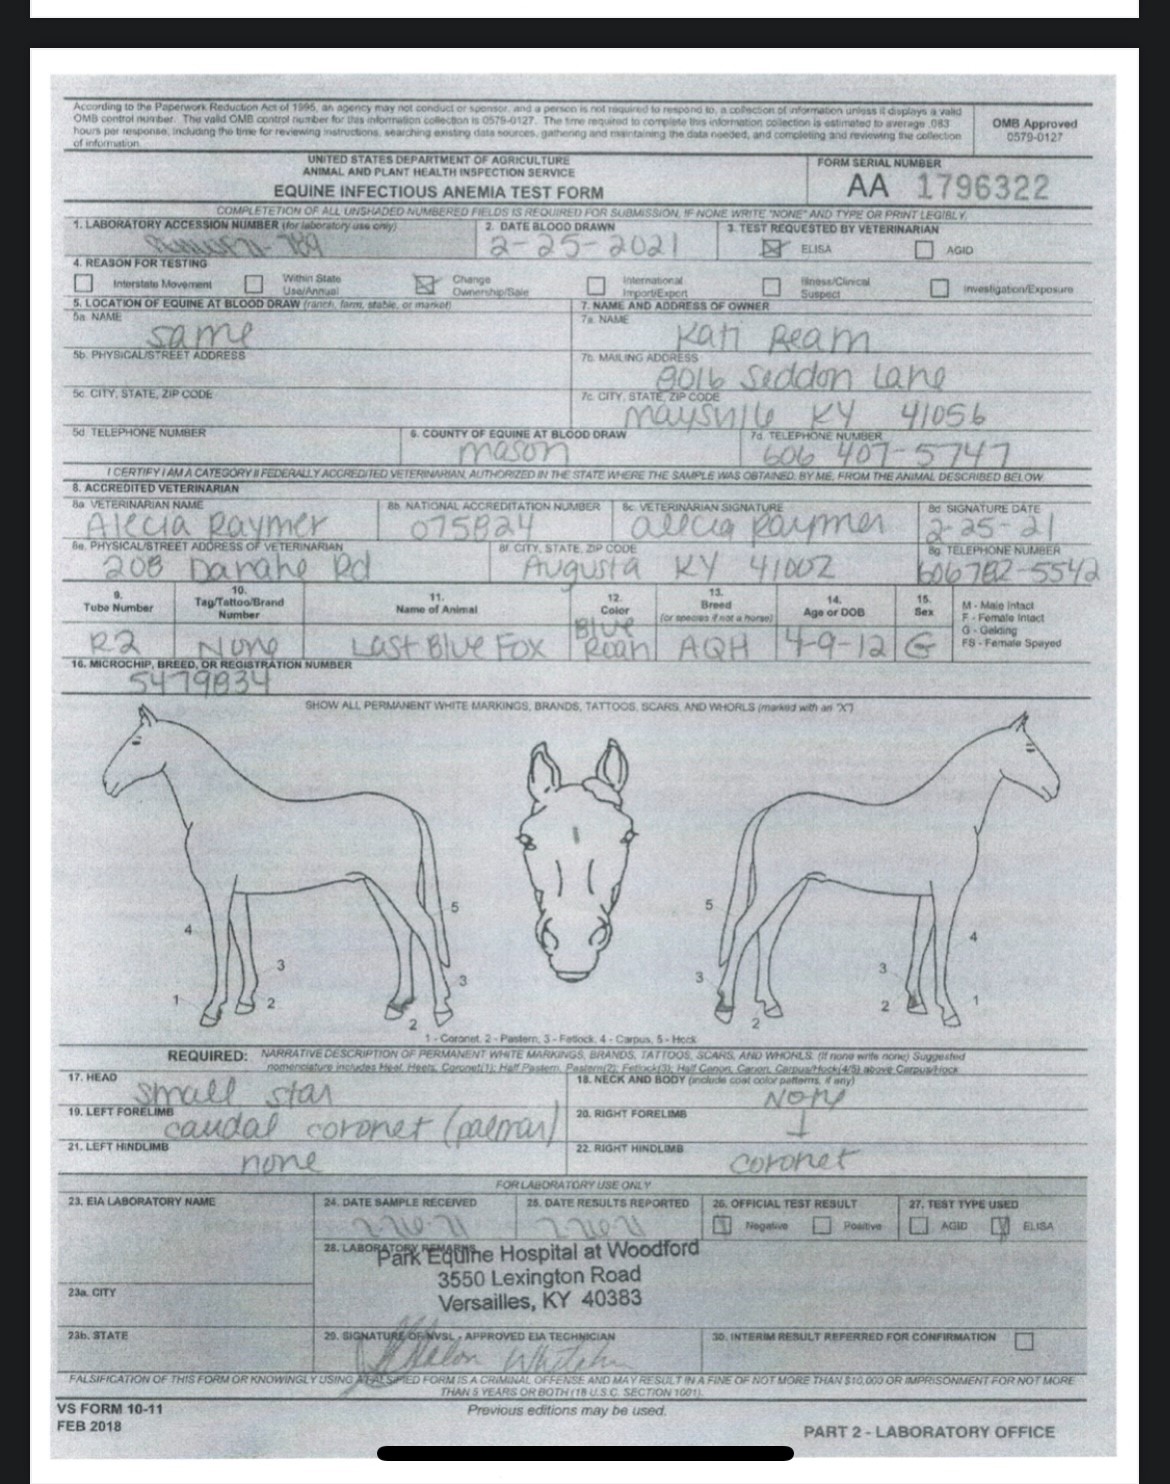 According to the Paperwork Reduction Act of 1995, an agency may not conduct or sponsor, and a person is not required to respond to, a collection of information unless it displays a valid
OMB control number. The valid OMB control number for this information collection is 0579-0127. The time required to complete this information collection is estimated to average .083
hours per response, including the time for reviewing instructions, searching existing data sources, gathering and maintaining the data needed, and completing and reviewing the collection
of information.
OMB Approved
0579-0127
UNITED STATES DEPARTMENT OF AGRICULTURE
ANIMAL AND PLANT HEALTH INSPECTION SERVICE
EQUINE INFECTIOUS ANEMIA TEST FORM
FORM SERIAL NUMBER
AA 1796322
COMPLETETION OF ALL UNSHADED NUMBERED FIELDS IS REQUIRED FOR SUBMISSION, IF NONE WRITE "NONE" AND TYPE OR PRINT LEGIBLY.
1. LABORATORY ACCESSION NUMBER (for laboratory use only)
2. DATE BLOOD DRAWN
2-25-2021
3. TEST REQUESTED BY VETERINARIAN
ELISA
AGID
4. REASON FOR TESTING
Interstate Movement
Within State
Use/Annual
Change
Ownership/Sale
International
Import/Export
Illness/Clinical
Suspect
Investigation/Exposure
5. LOCATION OF EQUINE AT BLOOD DRAW (ranch, farm, stable, or market)
7. NAME AND ADDRESS OF OWNER
5a. NAME
same
7a. NAME
Kati Ream
5b. PHYSICAL/STREET ADDRESS
7b. MAILING ADDRESS
8016 Seddon Lane
5c. CITY, STATE, ZIP CODE
7c. CITY, STATE, ZIP CODE
Maysville KY 41056
5d. TELEPHONE NUMBER
6. COUNTY OF EQUINE AT BLOOD DRAW
mason
7d. TELEPHONE NUMBER
606 407-5747
I CERTIFY I AM A CATEGORY II FEDERALLY ACCREDITED VETERINARIAN, AUTHORIZED IN THE STATE WHERE THE SAMPLE WAS OBTAINED, BY ME, FROM THE ANIMAL DESCRIBED BELOW.
8. ACCREDITED VETERINARIAN
8a. VETERINARIAN NAME
Alecia Raymer
8b. NATIONAL ACCREDITATION NUMBER
075824
8c. VETERINARIAN SIGNATURE
alecia Raymer
8d. SIGNATURE DATE
2-25-21
8e. PHYSICAL/STREET ADDRESS OF VETERINARIAN
208 Rd
8f. CITY, STATE, ZIP CODE
Augusta KY 41002
8g. TELEPHONE NUMBER
606 782-5542
9.
Tube Number
10.
Tag/Tattoo/Brand
Number
11.
Name of Animal
12.
Color
13.
Breed
(or species if not a horse)
14.
Age or DOB
15.
Sex
M - Male Intact
F - Female Intact
G - Gelding
FS - Female Spayed
R2
None
Last Blue Fox
Blue
Roan
AQH
4-9-12
G
16. MICROCHIP, BREED, OR REGISTRATION NUMBER
5479834
SHOW ALL PERMANENT WHITE MARKINGS, BRANDS, TATTOOS, SCARS, AND WHORLS (marked with an "X")
5
5
4
4
3
3
3
3
1
2
2
2
2
1
1 - Coronet, 2 - Pastern, 3 - Fetlock, 4 - Carpus, 5 - Hock
REQUIRED: NARRATIVE DESCRIPTION OF PERMANENT WHITE MARKINGS, BRANDS, TATTOOS, SCARS, AND WHORLS. (If none write none) Suggested
nomenclature includes Heal, Heels, Coronet(1); Half Pastern, Pastern(2); Fetlock(3); Half Canon, Canon, Carpus/Hock(4/5) above Carpus/Hock
17. HEAD
small star
18. NECK AND BODY (include coat color patterns, if any)
None
19. LEFT FORELIMB
caudal coronet (palmar)
20. RIGHT FORELIMB
21. LEFT HINDLIMB
none
22. RIGHT HINDLIMB
coronet
FOR LABORATORY USE ONLY
23. EIA LABORATORY NAME
24. DATE SAMPLE RECEIVED
25. DATE RESULTS REPORTED
26. OFFICIAL TEST RESULT
Negative
Positive
27. TEST TYPE USED
AGID
ELISA
28. LABORATORY REMARKS
Park Equine Hospital at Woodford
3550 Lexington Road
Versailles, KY 40383
23a. CITY
23b. STATE
29. SIGNATURE OF NVSL - APPROVED EIA TECHNICIAN
30. INTERIM RESULT REFERRED FOR CONFIRMATION
FALSIFICATION OF THIS FORM OR KNOWINGLY USING A FALSIFIED FORM IS A CRIMINAL OFFENSE AND MAY RESULT IN A FINE OF NOT MORE THAN $10,000 OR IMPRISONMENT FOR NOT MORE
THAN 5 YEARS OR BOTH (18 U.S.C. SECTION 1001).
VS FORM 10-11
FEB 2018
Previous editions may be used.
PART 2 - LABORATORY OFFICE